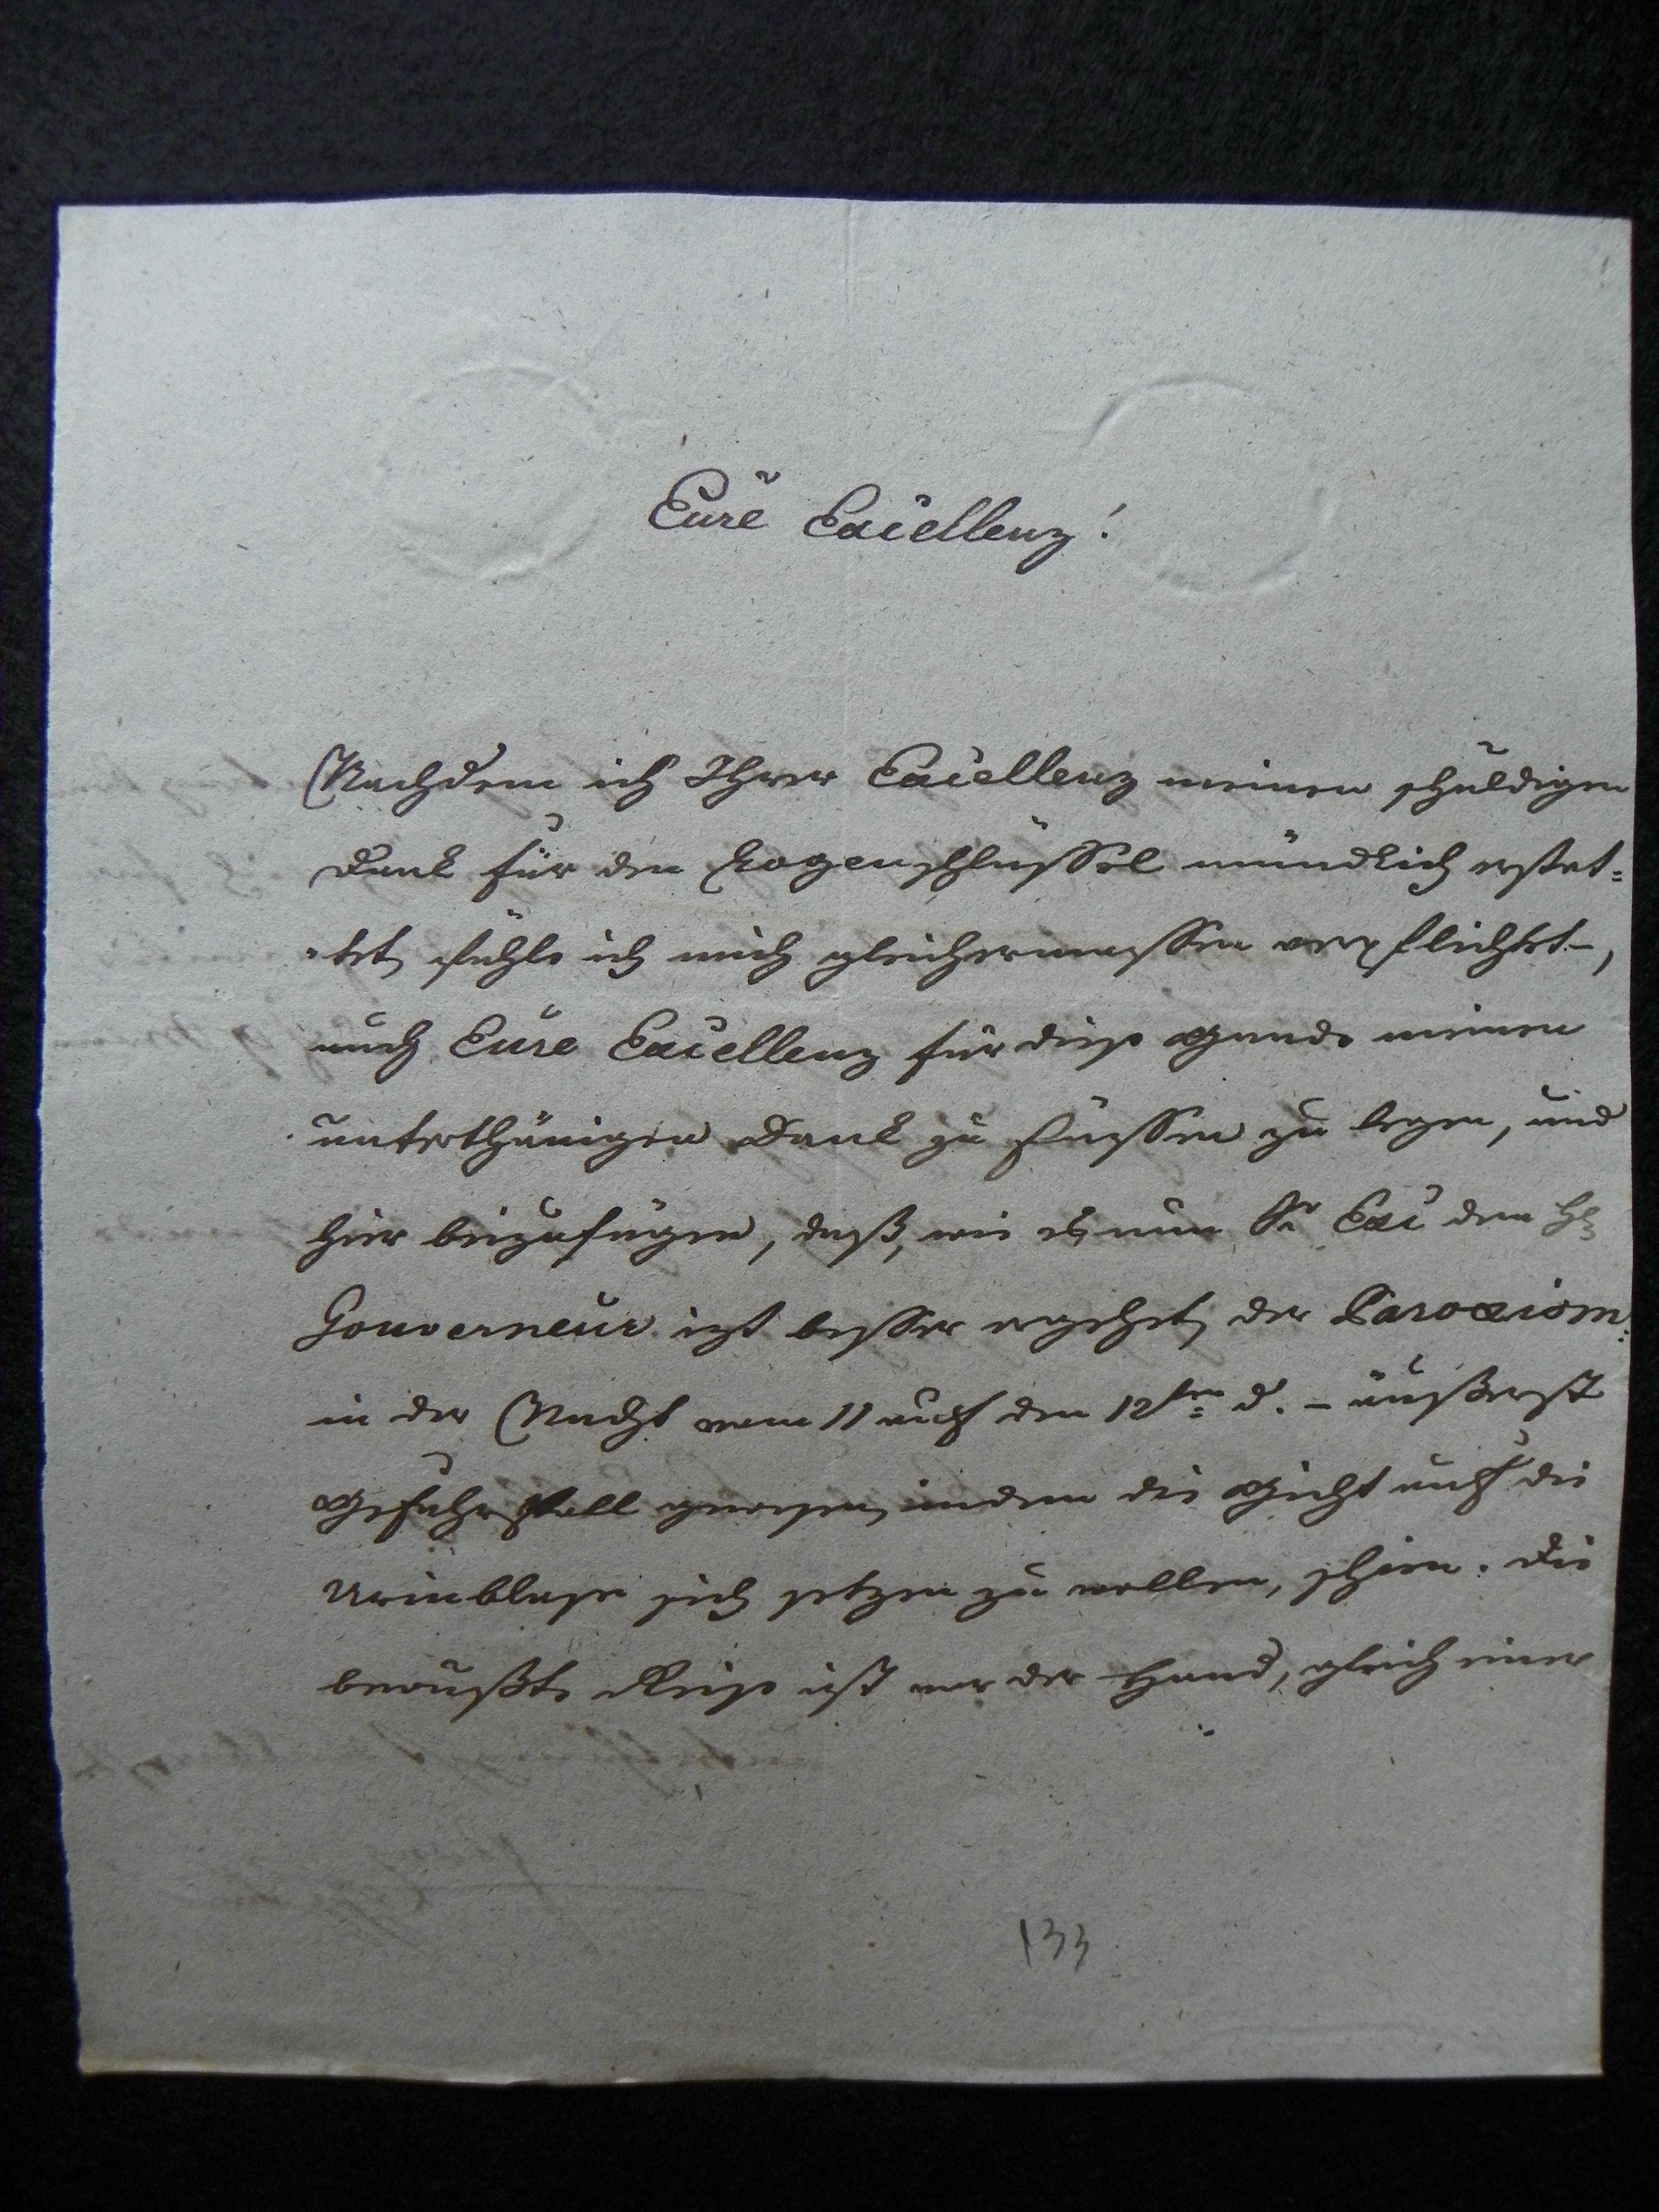 Eure Excellenz!
Nachdem ich Ihrer Excellenz meinen schuldigen
Dank für den Logenschlüssel mündlich erstat=
tet, fühle ich mich gleichermassen verpflichtet,
auch Eure Excellenz für diese Gnade meinen
unterthänigen Dank zu Füssen zu legen, und
hier beizufügen, daß, wie es nun Sr Exc den H
Gouverneur izt besser ergehet, der Paroxism:
in der Nacht vom 11 auf den 12ten d. – äußerst
Gefahrvoll gewesen, indem die Gicht auf die
Urinblase sich setzen zu wollen, schien. Die
bewußte Reise ist vor der Hand, gleich einer
133